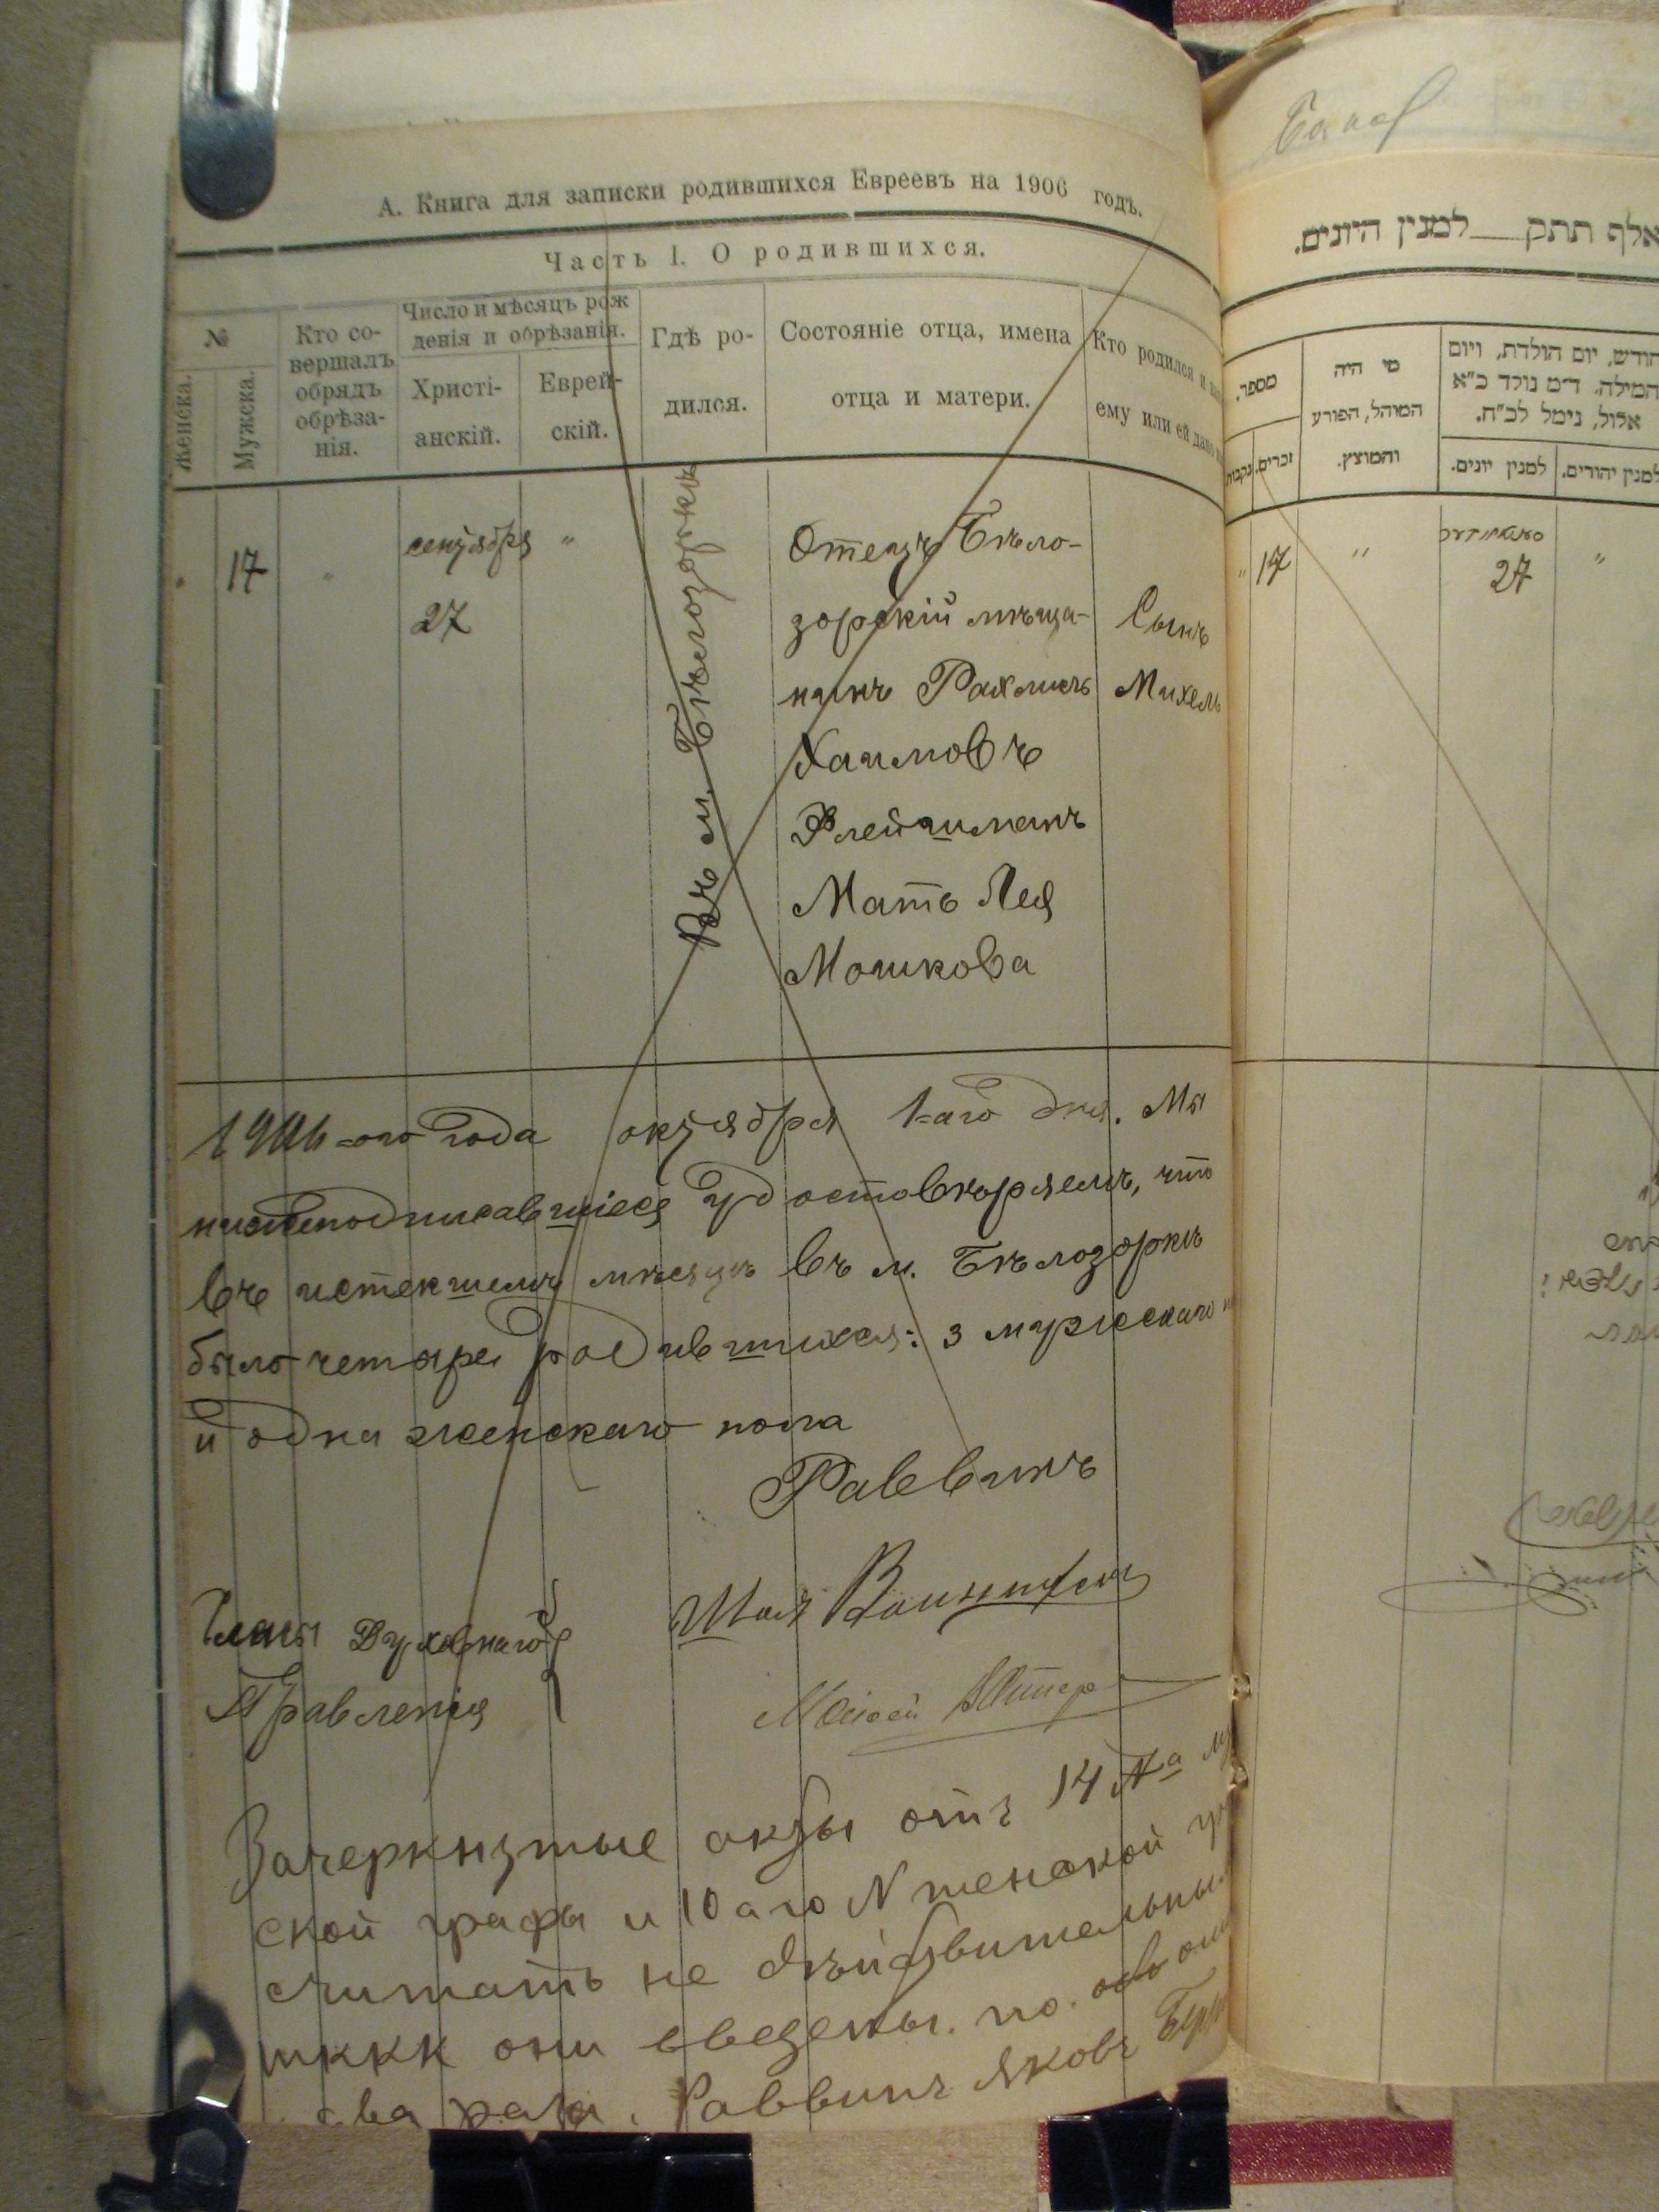 А. Книга для записки родившихся Евреевъ на 1906 годъ.
Часть I. О родившихся.
№
Женска.
Мужска.
Кто со-
вершалъ
обрядъ
обрѣза-
нія.
Число и мѣсяцъ рож
денія и обрѣзанія.
Христі-
анскій.
Еврей-
скій.
Гдѣ ро-
дился.
Состояніе отца, имена
отца и матери.
Кто родился и
ему или ей дано
" 17 " сентября "
27
Въ м. Бѣлозоркѣ
Отецъ Бѣло-
зорскій мѣща-
нинъ Рахмиель
Хаимовъ
Флейшманъ
Мать Лея
Мошкова
Сынъ
Михель
1906-ого года октября 1-аго дня. Мы
нижеподписавшіеся удостовѣряемъ, что
въ истекшемъ мѣсяцѣ въ м. Бѣлозоркѣ
было четыре родившихся: 3 мужескаго
и одна женскаго пола
Раввинъ
Члены Духовнаго
Правленія
Шая
Зачеркнутые акты отъ 14 №а
ской графы и 10 аго N женской
считать не дѣйствительны
тккк они введены по
два раза. Раввинъ Яковъ
אלף תתק למנין היונים.
מספר.
נקבות
זכרים.
מי היה
המוהל, הפורע
והמוצץ.
חודש, יום הולדת, ויום
המילה. ד״מ נולד כ״א
אלול, נימל לכ״ח.
למנין יונים.
למנין יהודים.
" 17 " 27 "